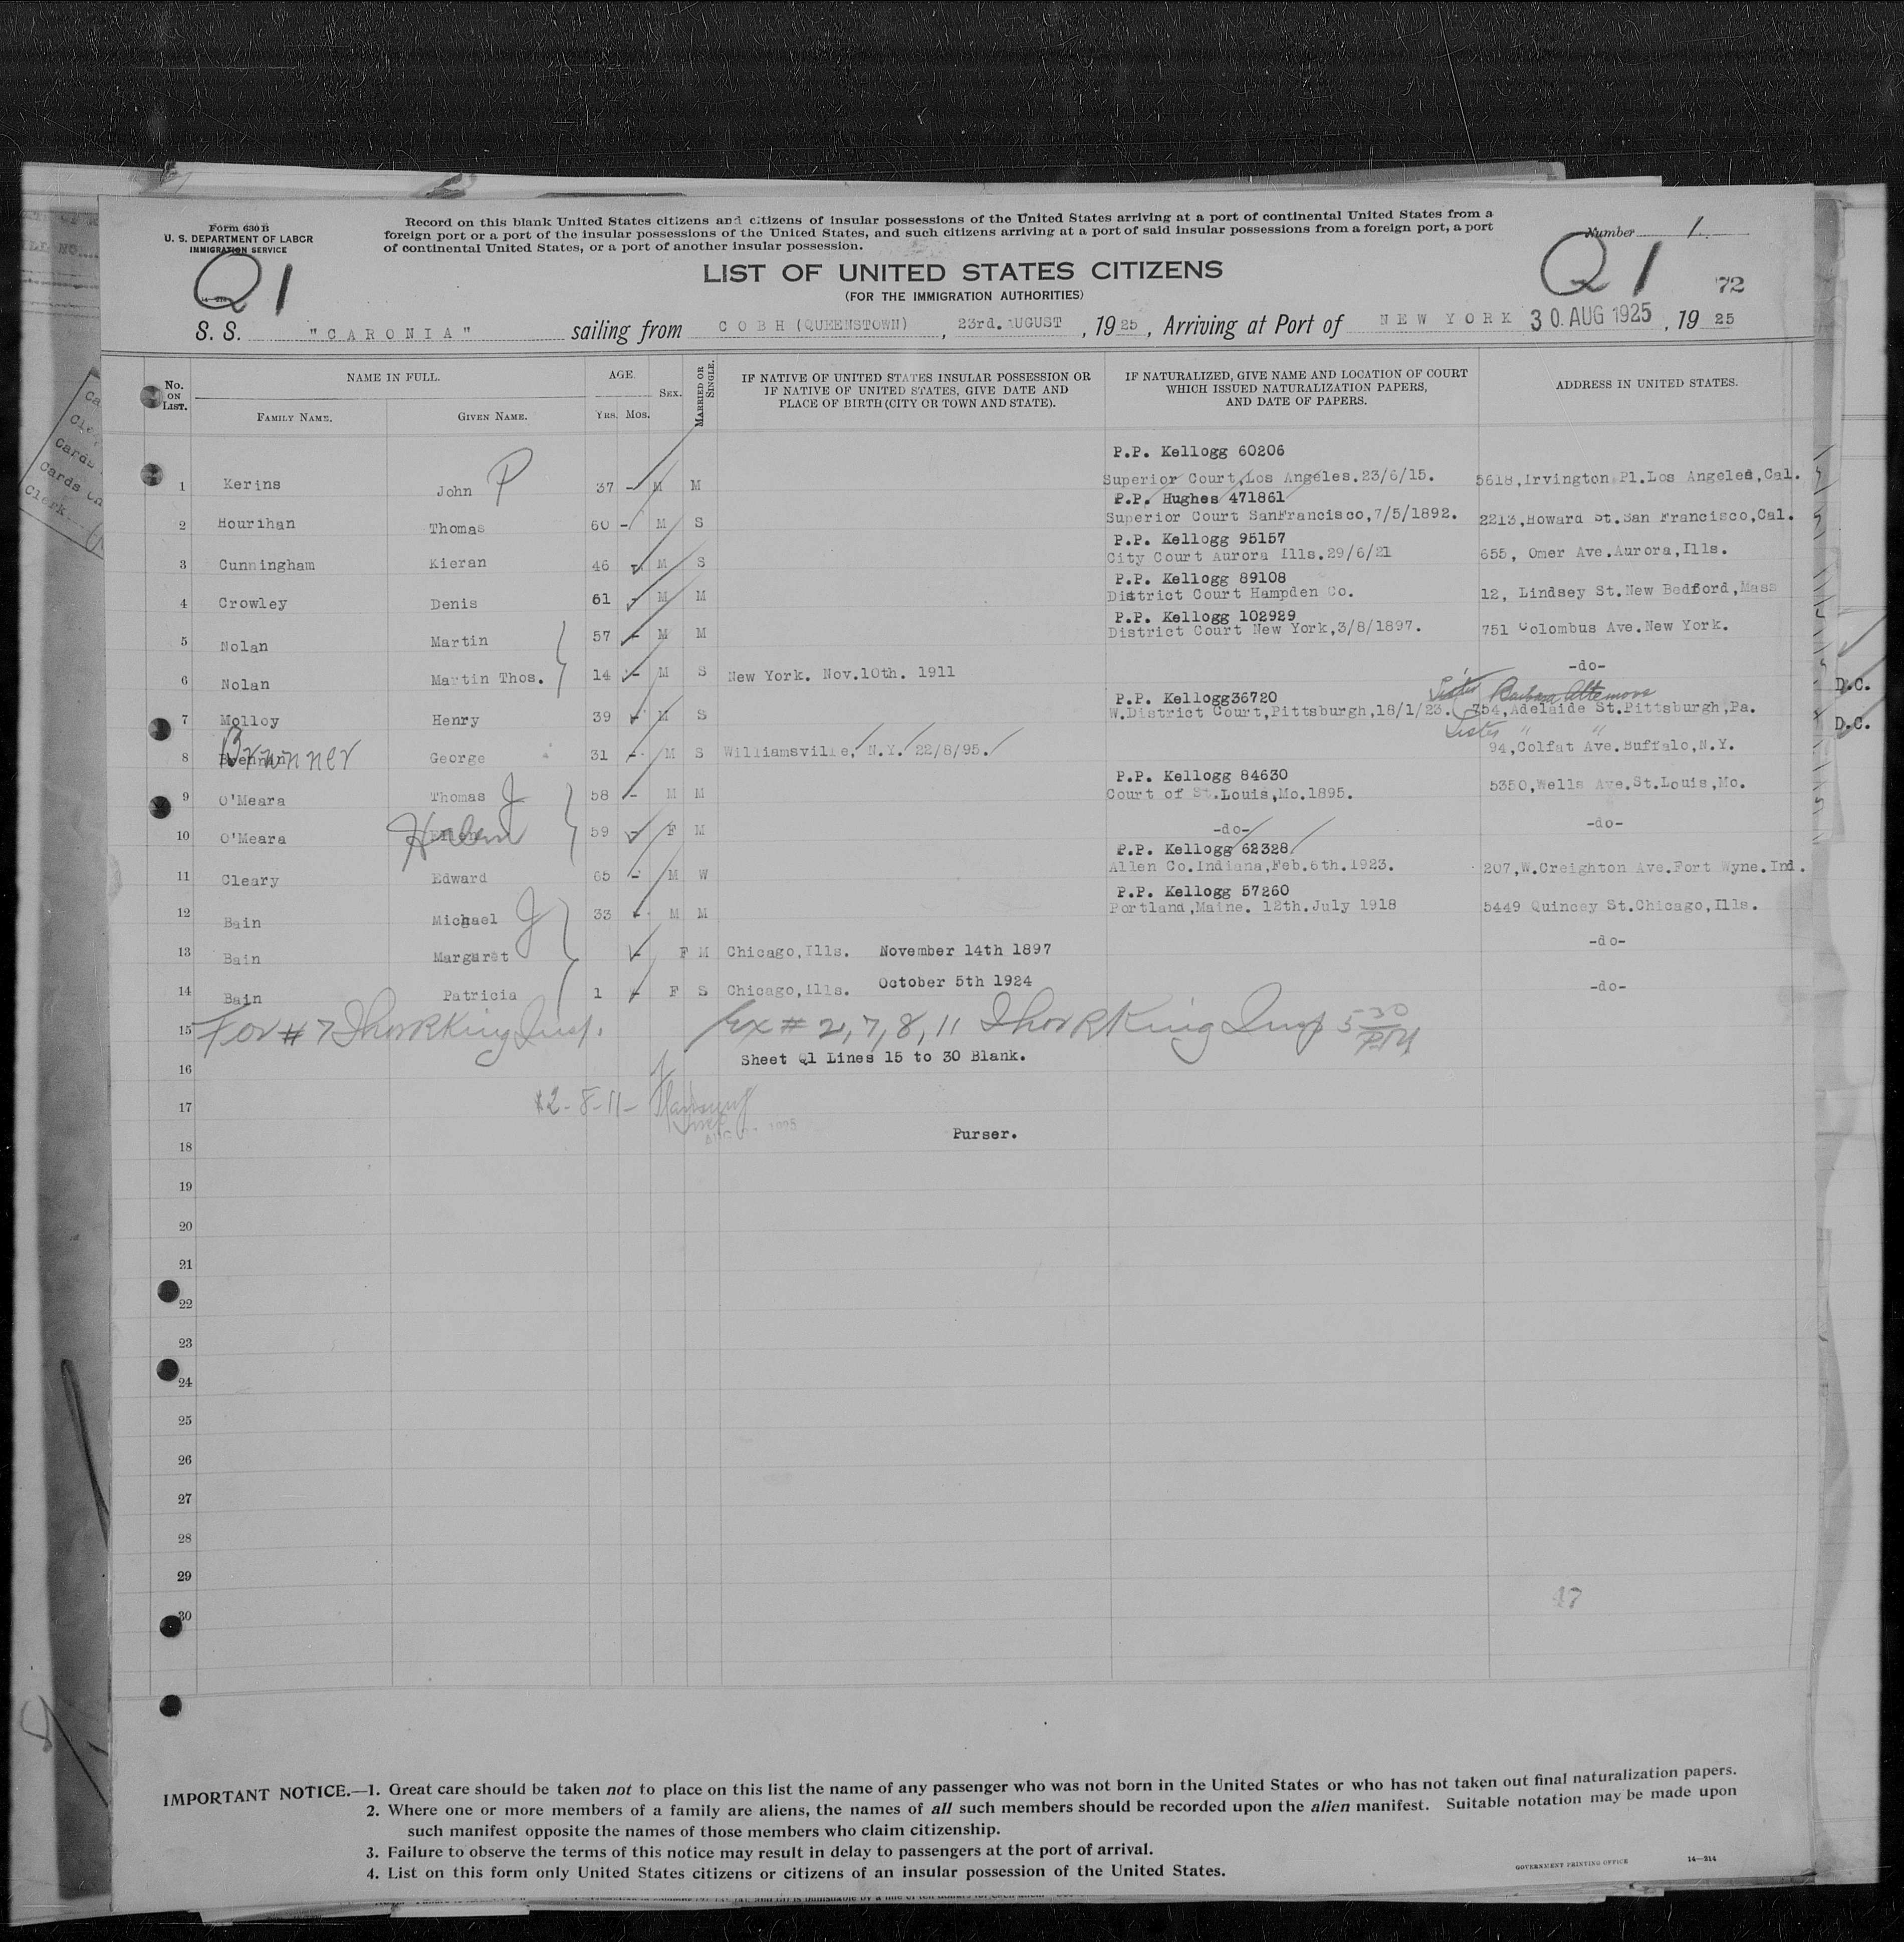 Form 630 B
U. S. DEPARTMENT OF LABOR
IMMIGRATION SERVICE
Record on this blank United States citizens and citizens of insular possessions of the United States arriving at a port of continental United States from a
foreign port or a port of the insular possessions of the United States, and such citizens arriving at a port of said insular possessions from a foreign port, a port
of continental United States, or a port of another insular possession.
Number 1.
Q1
Q1
72
LIST OF UNITED STATES CITIZENS
(FOR THE IMMIGRATION AUTHORITIES)
S. S. "CARONIA" sailing from COBH (QUEENSTOWN), 23rd. AUGUST, 1925, Arriving at Port of NEW YORK 30. AUG 1925, 1925
No. ON LIST.
NAME IN FULL.
FAMILY NAME.
GIVEN NAME.
AGE.
YRS. MOS.
SEX.
MARRIED OR SINGLE.
IF NATIVE OF UNITED STATES INSULAR POSSESSION OR
IF NATIVE OF UNITED STATES, GIVE DATE AND
PLACE OF BIRTH (CITY OR TOWN AND STATE).
IF NATURALIZED, GIVE NAME AND LOCATION OF COURT
WHICH ISSUED NATURALIZATION PAPERS,
AND DATE OF PAPERS.
ADDRESS IN UNITED STATES.
P.P. Kellogg 60206
1 Kerins John P 37 - M M Superior Court,Los Angeles.23/6/15. 5618,Irvington Pl.Los Angeles,Cal.
P.P. Hughes 471861
2 Hourihan Thomas 60 - M S Superior Court SanFrancisco,7/5/1892. 2213,Howard St.San Francisco,Cal.
P.P. Kellogg 95157
3 Cunningham Kieran 46 - M S City Court Aurora Ills.29/6/21 655, Omer Ave.Aurora,Ills.
P.P. Kellogg 89108
4 Crowley Denis 61 - M M District Court Hampden Co. 12, Lindsey St.New Bedford,Mass
P.P. Kellogg 102929
5 Nolan Martin 57 - M M District Court New York,3/8/1897. 751 Colombus Ave.New York.
6 Nolan Martin Thos. 14 - M S New York. Nov.10th. 1911 -do-
D.C.
P.P. Kellogg36720 Sister Barbara
7 Molloy Henry 39 - M S W.District Court,Pittsburgh,18/1/23. 754,Adelaide St.Pittsburgh,Pa.
D.C.
Sister " "
8 Brunner George 31 - M S Williamsville, N.Y. 22/8/95. 94,Colfat Ave.Buffalo,N.Y.
P.P. Kellogg 84630
9 O'Meara Thomas J 58 - M M Court of St.Louis,Mo.1895. 5350,Wells Ave.St.Louis,Mo.
10 O'Meara Helen 59 - F M -do- -do-
P.P. Kellogg 62328
11 Cleary Edward 65 - M W Allen Co.Indiana,Feb.6th.1923. 207,W.Creighton Ave.Fort Wyne.Ind.
P.P. Kellogg 57260
12 Bain Michael J 33 - M M Portland,Maine. 12th.July 1918 5449 Quincey St.Chicago,Ills.
13 Bain Margaret F M Chicago,Ills. November 14th 1897 -do-
14 Bain Patricia 1 - F S Chicago,Ills. October 5th 1924 -do-
15 For # 7 Thor R King Insp. Ex # 2, 7, 8, 11 Thor R King Insp 5 30 PM
Sheet Q1 Lines 15 to 30 Blank.
16
17 2-8-11-
18 Purser.
19
20
21
22
23
24
25
26
27
28
29
30
47
IMPORTANT NOTICE.—1. Great care should be taken not to place on this list the name of any passenger who was not born in the United States or who has not taken out final naturalization papers.
2. Where one or more members of a family are aliens, the names of all such members should be recorded upon the alien manifest. Suitable notation may be made upon
such manifest opposite the names of those members who claim citizenship.
3. Failure to observe the terms of this notice may result in delay to passengers at the port of arrival.
4. List on this form only United States citizens or citizens of an insular possession of the United States.
GOVERNMENT PRINTING OFFICE 14—214